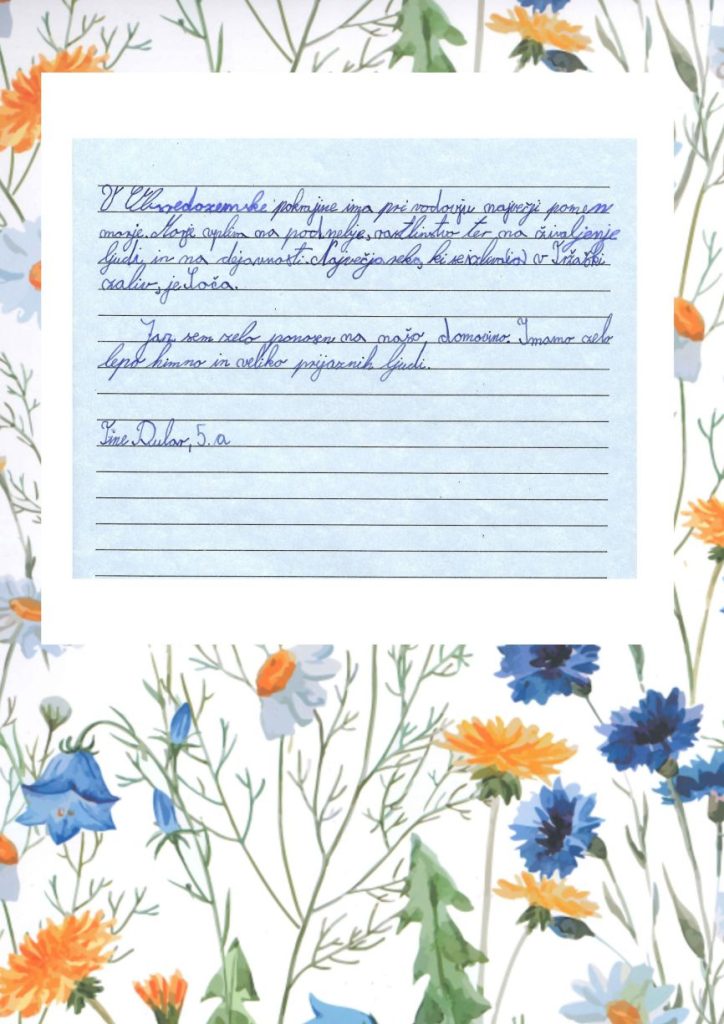 V Obsredozemske pokrajine ima pri vodovju največji pomen
morje. Morje vpliva na podnebje, rastlinstvo ter na življenje
ljudi in na dejavnosti. Največja reka, ki se izliva v Tržaški
zaliv, je Soča.
Jaz sem zelo ponosen na našo domovino. Imamo zelo
lepo himno in veliko prijaznih ljudi.
Tine Dular, 5. a